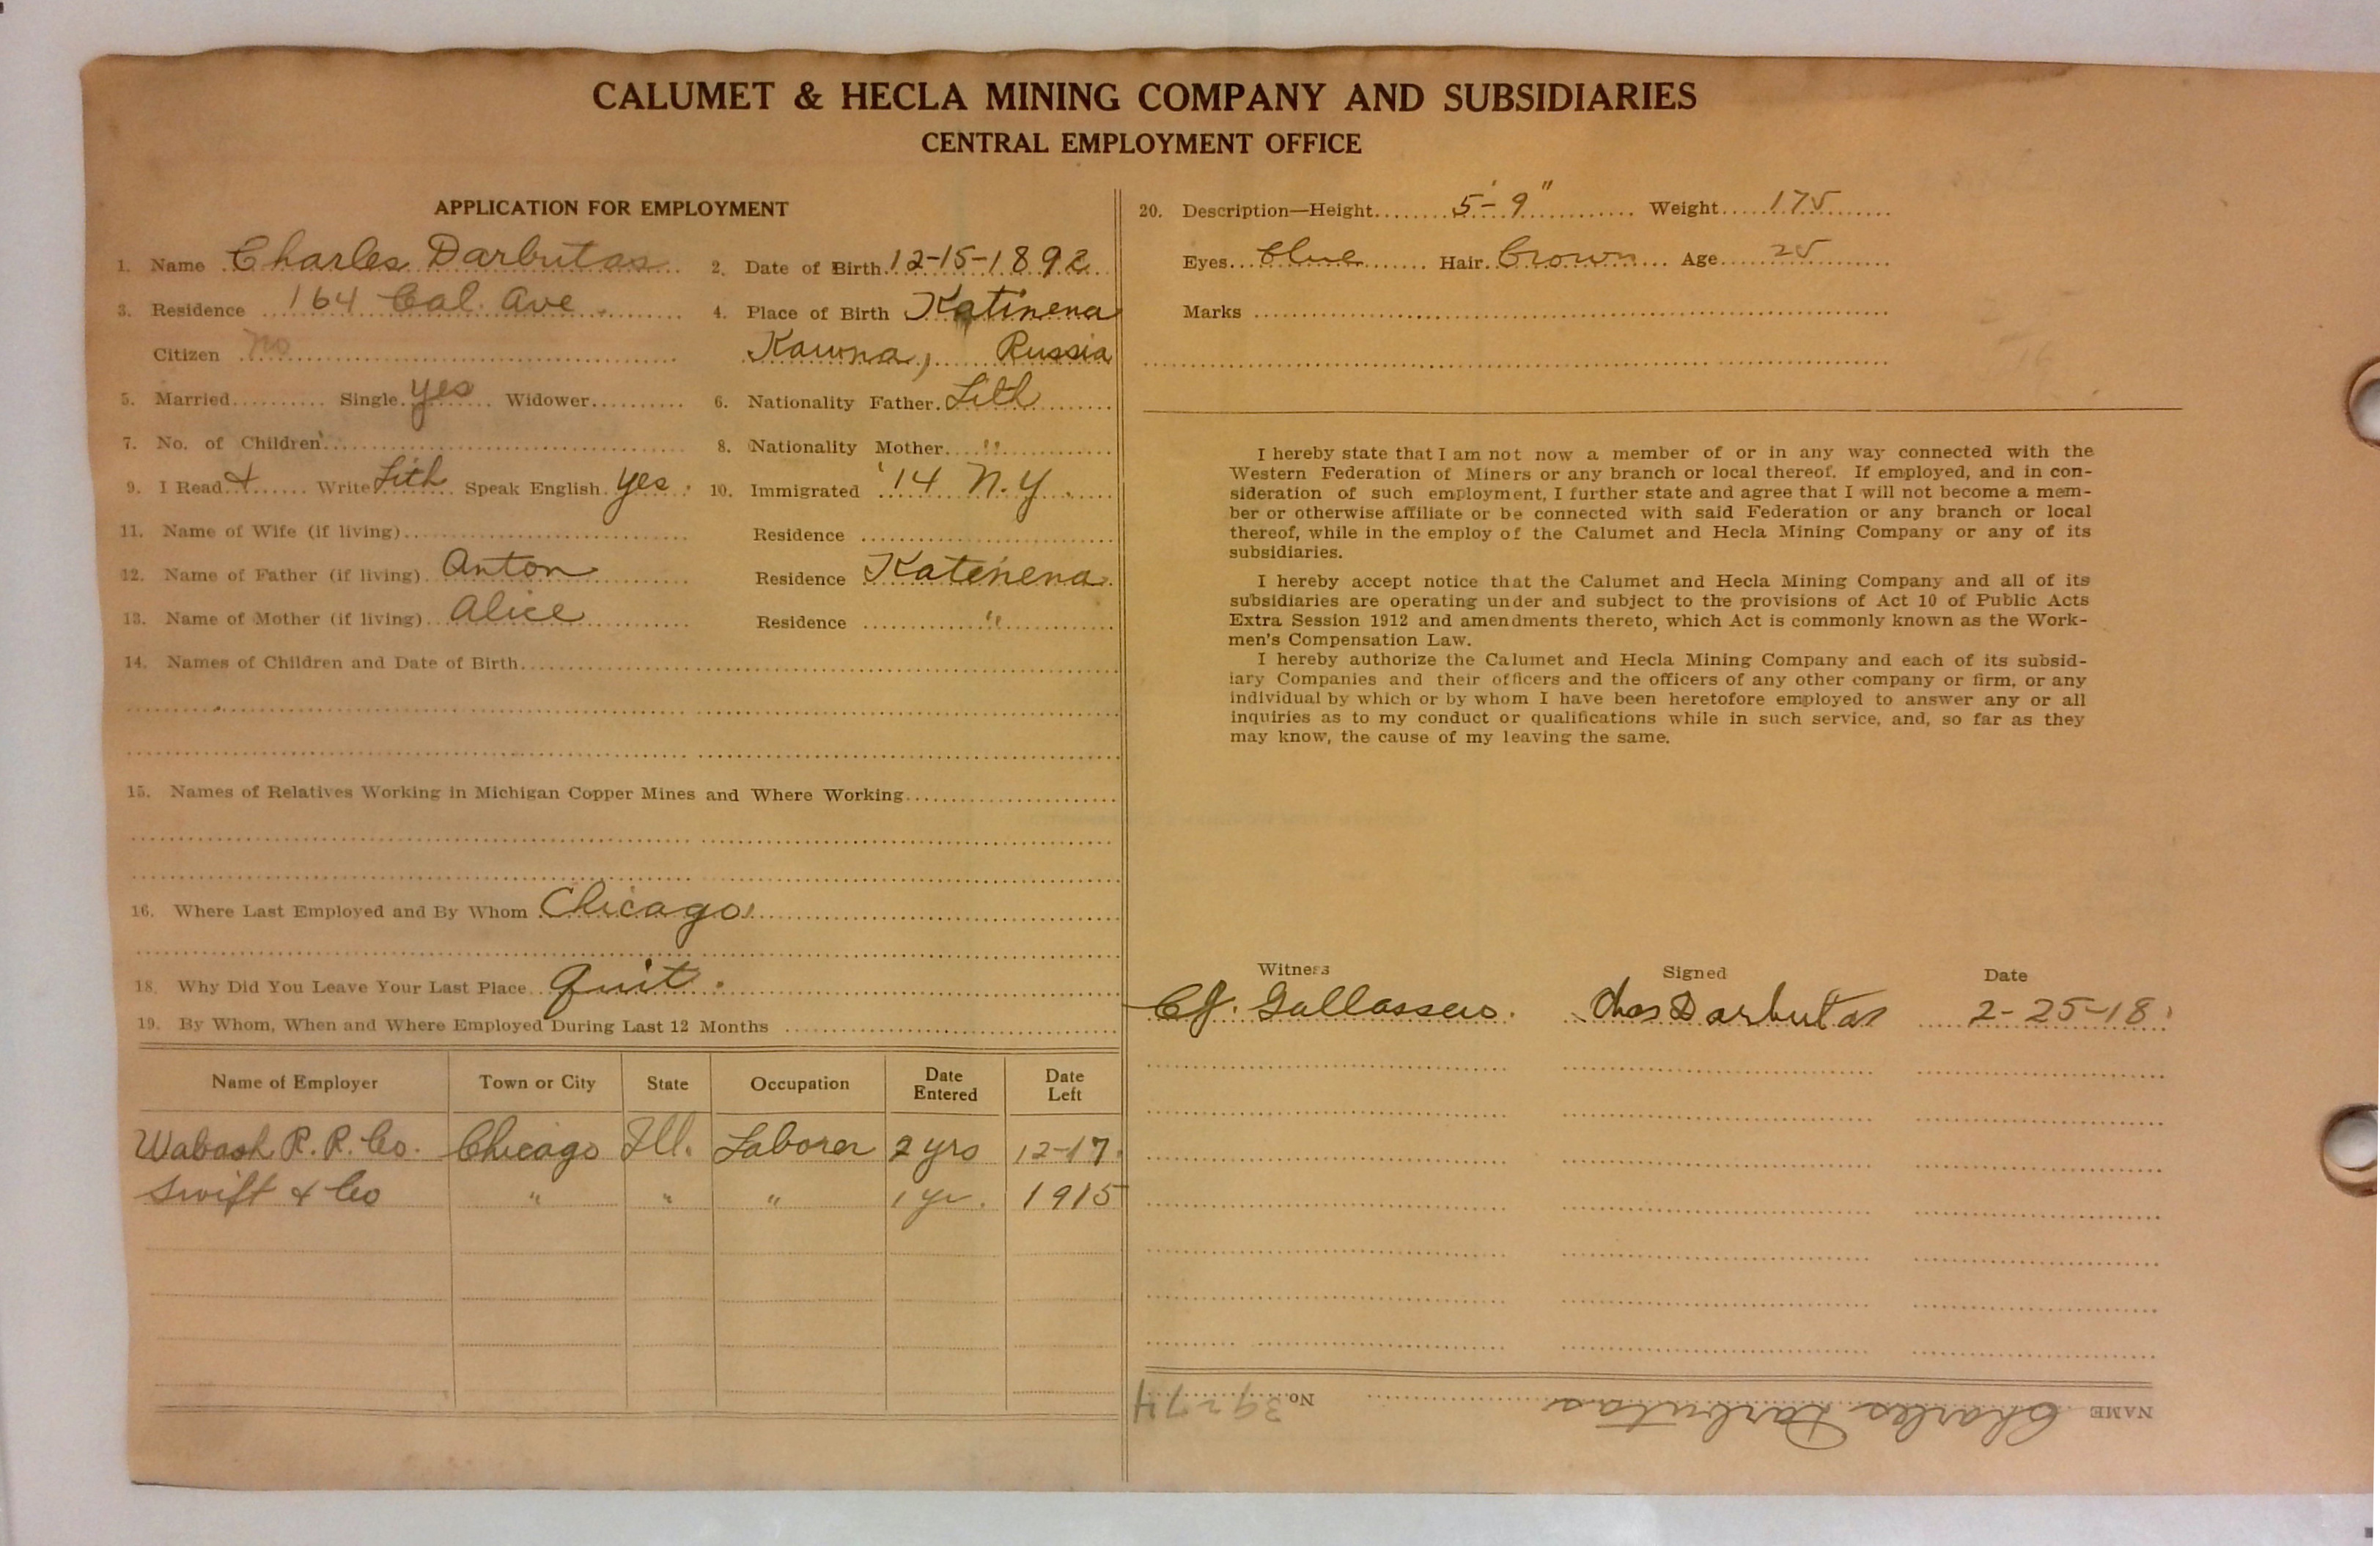 CALUMET & HECLA MINING COMPANY AND SUBSIDIARIES
CENTRAL EMPLOYMENT OFFICE
APPLICATION FOR EMPLOYMENT
1. Name Charles Darbutas
2. Date of Birth 12-15-1892
3. Residence 164 Cal. Ave
4. Place of Birth Katinena
Citizen no
Kowna, Russia
5. Married Single yes Widower
6. Nationality Father Lith
7. No. of Children
8. Nationality Mother "
9. I Read & Write Lith Speak English yes
10. Immigrated '14 N.Y.
11. Name of Wife (if living)
Residence
12. Name of Father (if living) Anton
Residence Katenena
13. Name of Mother (if living) Alice
Residence "
14. Names of Children and Date of Birth
15. Names of Relatives Working in Michigan Copper Mines and Where Working
16. Where Last Employed and By Whom Chicago
18. Why Did You Leave Your Last Place Quit.
19. By Whom, When and Where Employed During Last 12 Months
Name of Employer Town or City State Occupation Date Entered Date Left
Wabash R. R. Co. Chicago Ill. Laborer 2 yrs 12-17
Swift & Co " " " 1 yr. 1915
20. Description—Height 5'-9" Weight 175
Eyes Blue Hair Brown Age 25
Marks
I hereby state that I am not now a member of or in any way connected with the
Western Federation of Miners or any branch or local thereof. If employed, and in con-
sideration of such employment, I further state and agree that I will not become a mem-
ber or otherwise affiliate or be connected with said Federation or any branch or local
thereof, while in the employ of the Calumet and Hecla Mining Company or any of its
subsidiaries.
I hereby accept notice that the Calumet and Hecla Mining Company and all of its
subsidiaries are operating under and subject to the provisions of Act 10 of Public Acts
Extra Session 1912 and amendments thereto, which Act is commonly known as the Work-
men's Compensation Law.
I hereby authorize the Calumet and Hecla Mining Company and each of its subsid-
iary Companies and their officers and the officers of any other company or firm, or any
individual by which or by whom I have been heretofore employed to answer any or all
inquiries as to my conduct or qualifications while in such service, and, so far as they
may know, the cause of my leaving the same.
Witness Signed Date
Chas Darbutas 2-25-18
NAME Charles Darbutas No. 39274